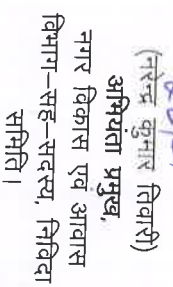 (नरेन्द्र कुमार तिवारी)
अभियंता प्रमुख,
नगर विकास एवं आवास
विभाग–सह–सदस्य, निविदा
समिति।